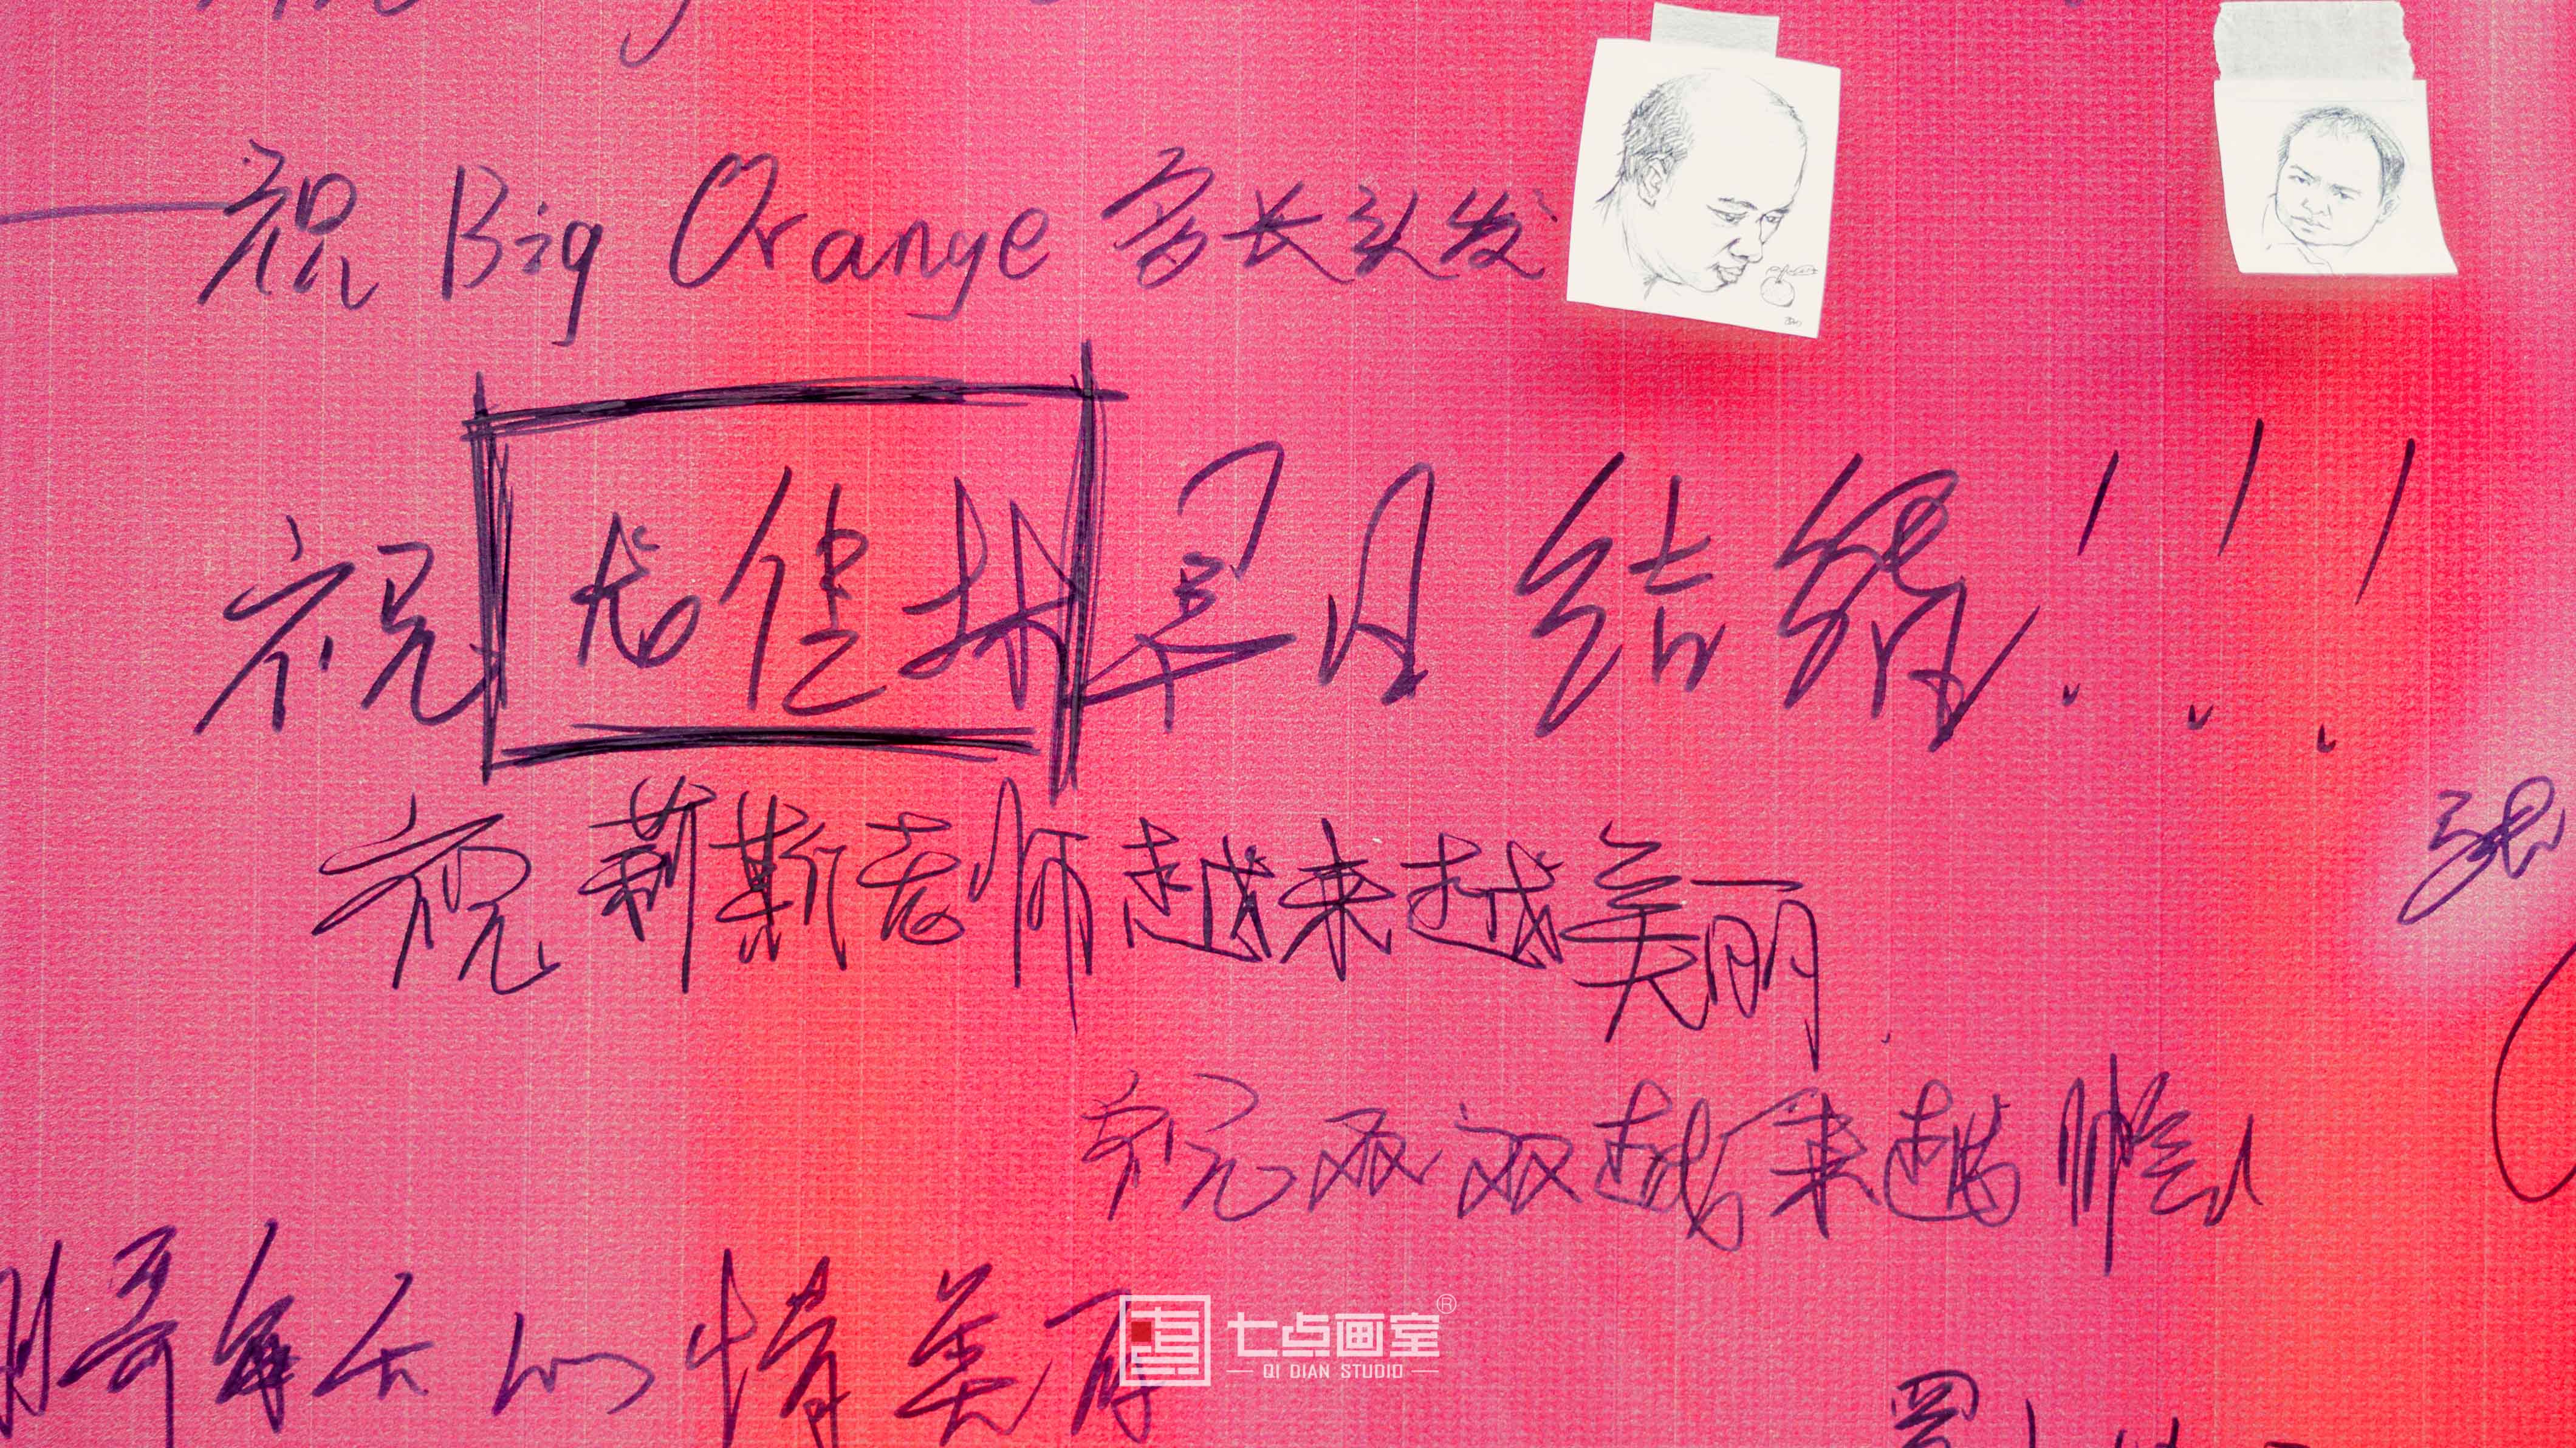 祝 Big Orange 家长头发
祝 龙佳林 早日结婚!!!
祝莉斯老师越来越美丽.
祝双双越来越帅气
哥每天心情美丽
七点画室®
QI DIAN STUDIO